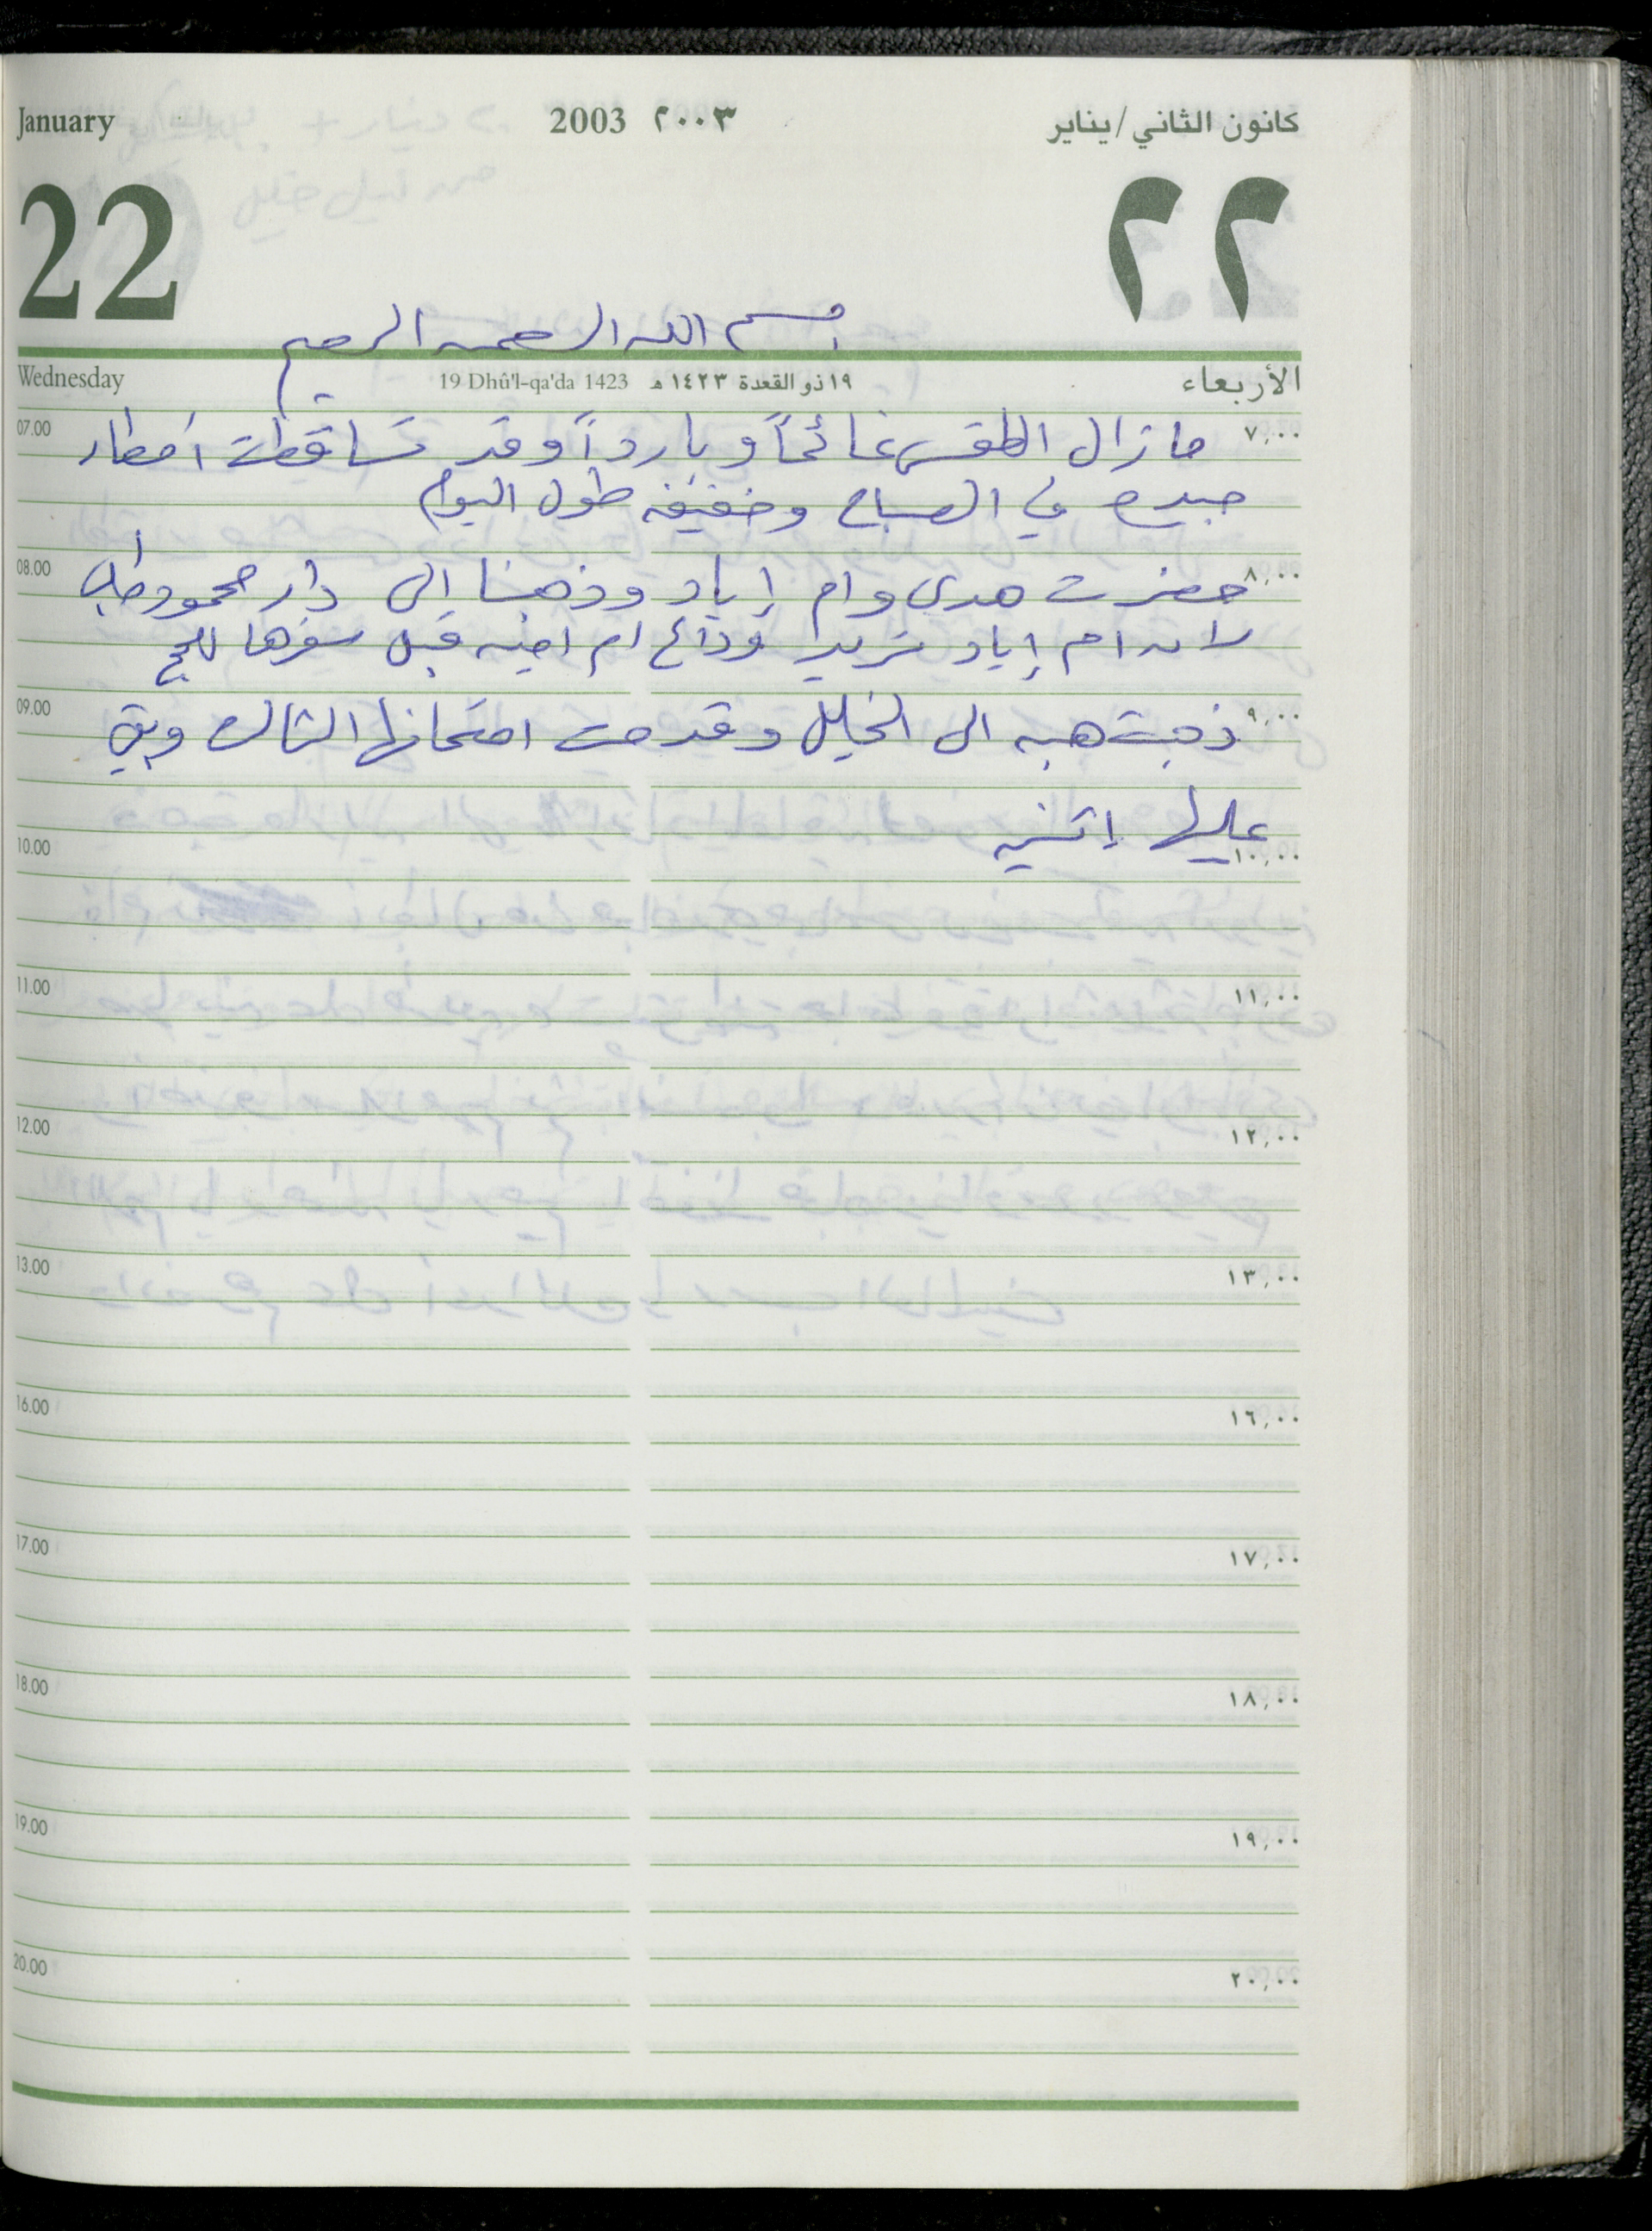 January 2003 ٢٠٠٣ كانون الثاني/يناير
22 ٢٢
بسم الله الرحمن الرحيم
Wednesday 19 Dhû'l-qa'da 1423 ١٩ ذو القعدة ١٤٢٣ هـ الأربعاء
07.00 ٧,٠٠
ما زال الطقس غائماً وبارداً وقد تساقطت امطار
جيده في الصباح وخفيفه طول اليوم
08.00 ٨,٠٠
حضرت هدى وام إياد وذهبنا إلى دار محمود
لان ام إياد تريد وداع ام امينه قبل سفرها للحج
09.00 ٩,٠٠
ذهبت هبه الى الخليل وقدمت امتحانها الثالث وبقي
عليها إثنين
10.00 ١٠,٠٠
11.00 ١١,٠٠
12.00 ١٢,٠٠
13.00 ١٣,٠٠
16.00 ١٦,٠٠
17.00 ١٧,٠٠
18.00 ١٨,٠٠
19.00 ١٩,٠٠
20.00 ٢٠,٠٠